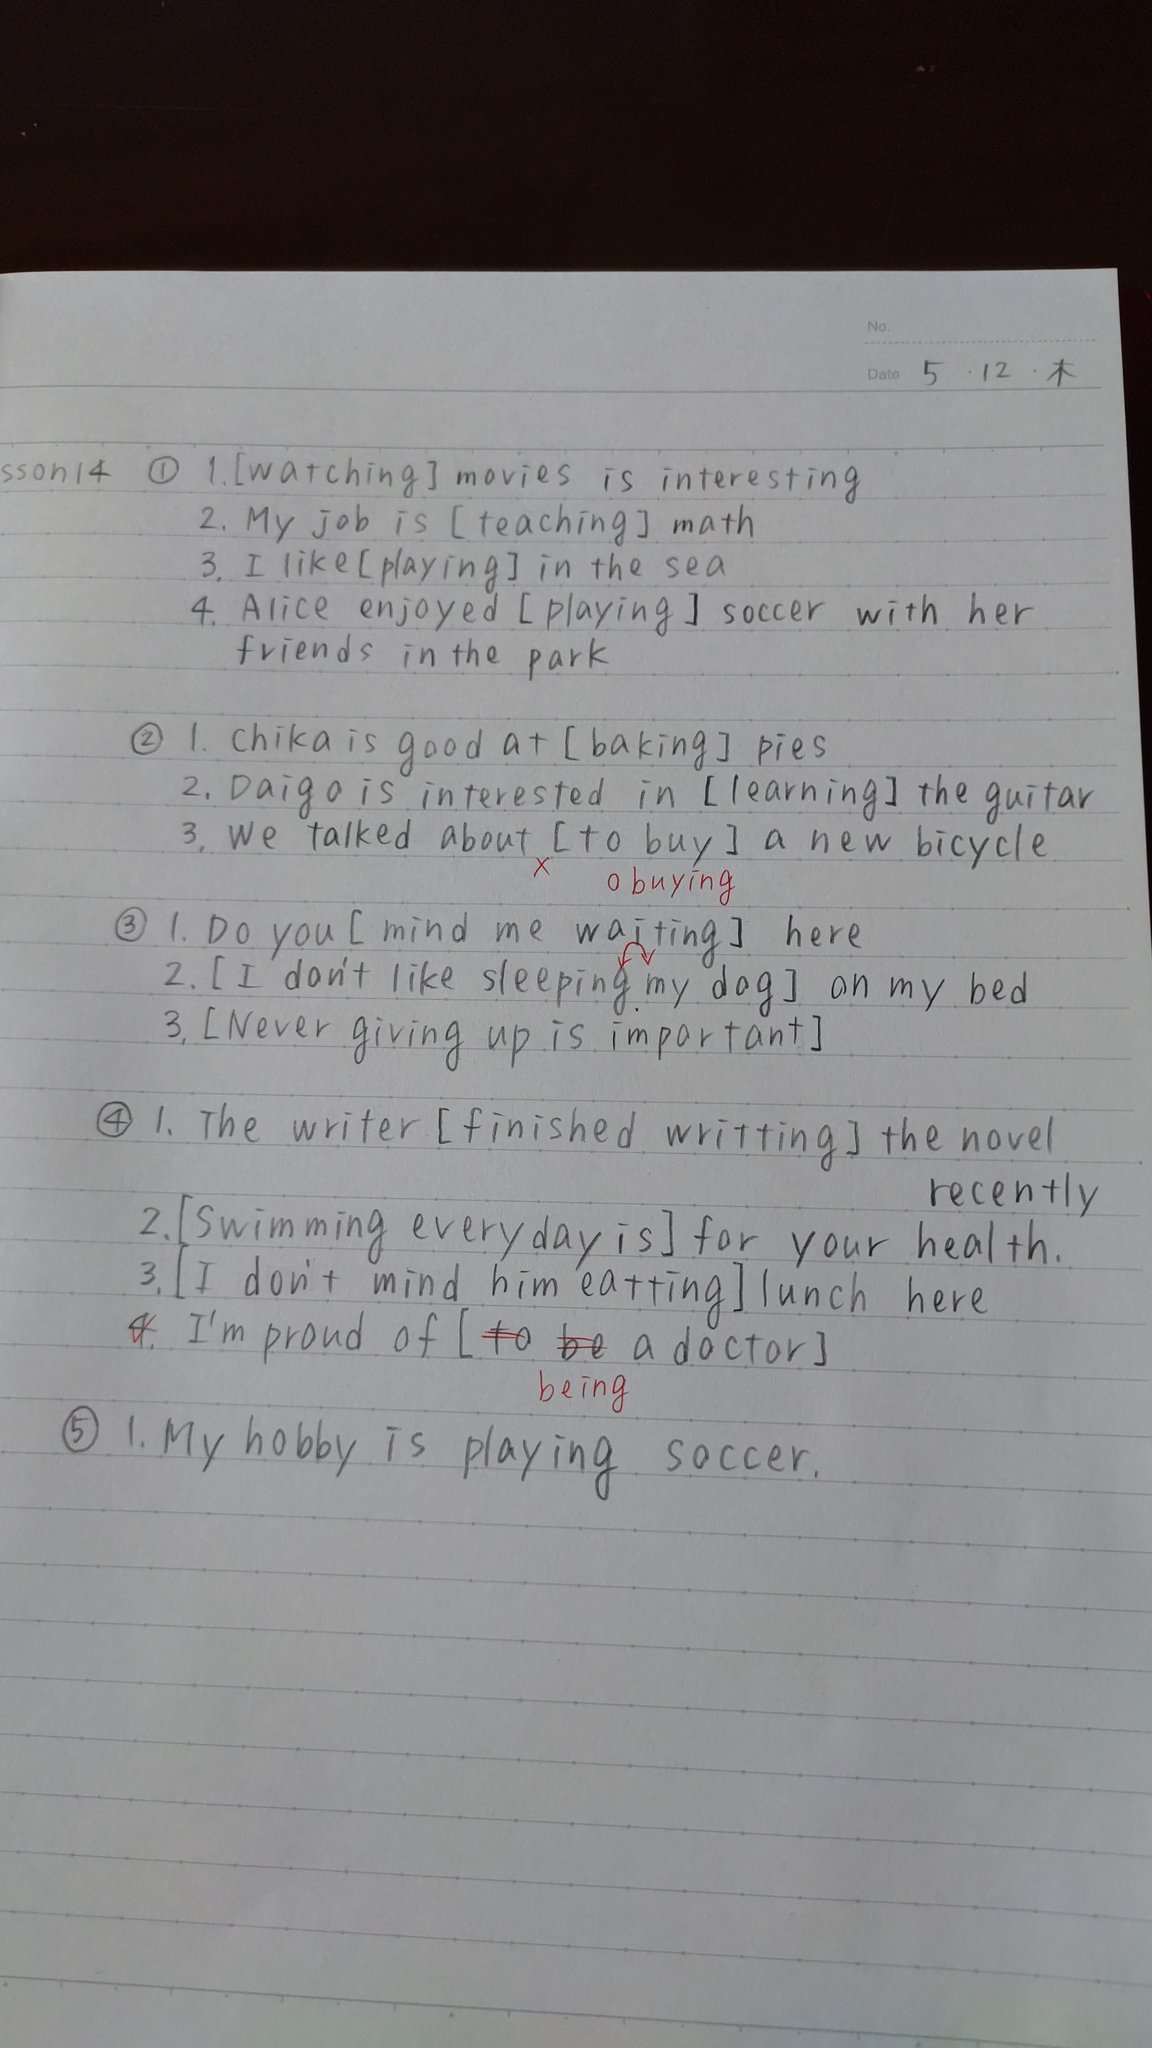 No.
Date 5 · 12 · 木
sson14 ① 1. [watching] movies is interesting
2. My job is [teaching] math
3. I like [playing] in the sea
4. Alice enjoyed [playing] soccer with her
friends in the park
② 1. Chika is good at [baking] pies
2. Daigo is interested in [learning] the guitar
3. We talked about [to buy] a new bicycle
x o buying
③ 1. Do you [mind me waiting] here
2. [I don't like sleeping my dog] on my bed
3. [Never giving up is important]
④ 1. The writer [finished writting] the novel
recently
2. [Swimming everyday is] for your health.
3. [I don't mind him eatting] lunch here
4. I'm proud of [to be a doctor]
being
⑤ 1. My hobby is playing soccer.